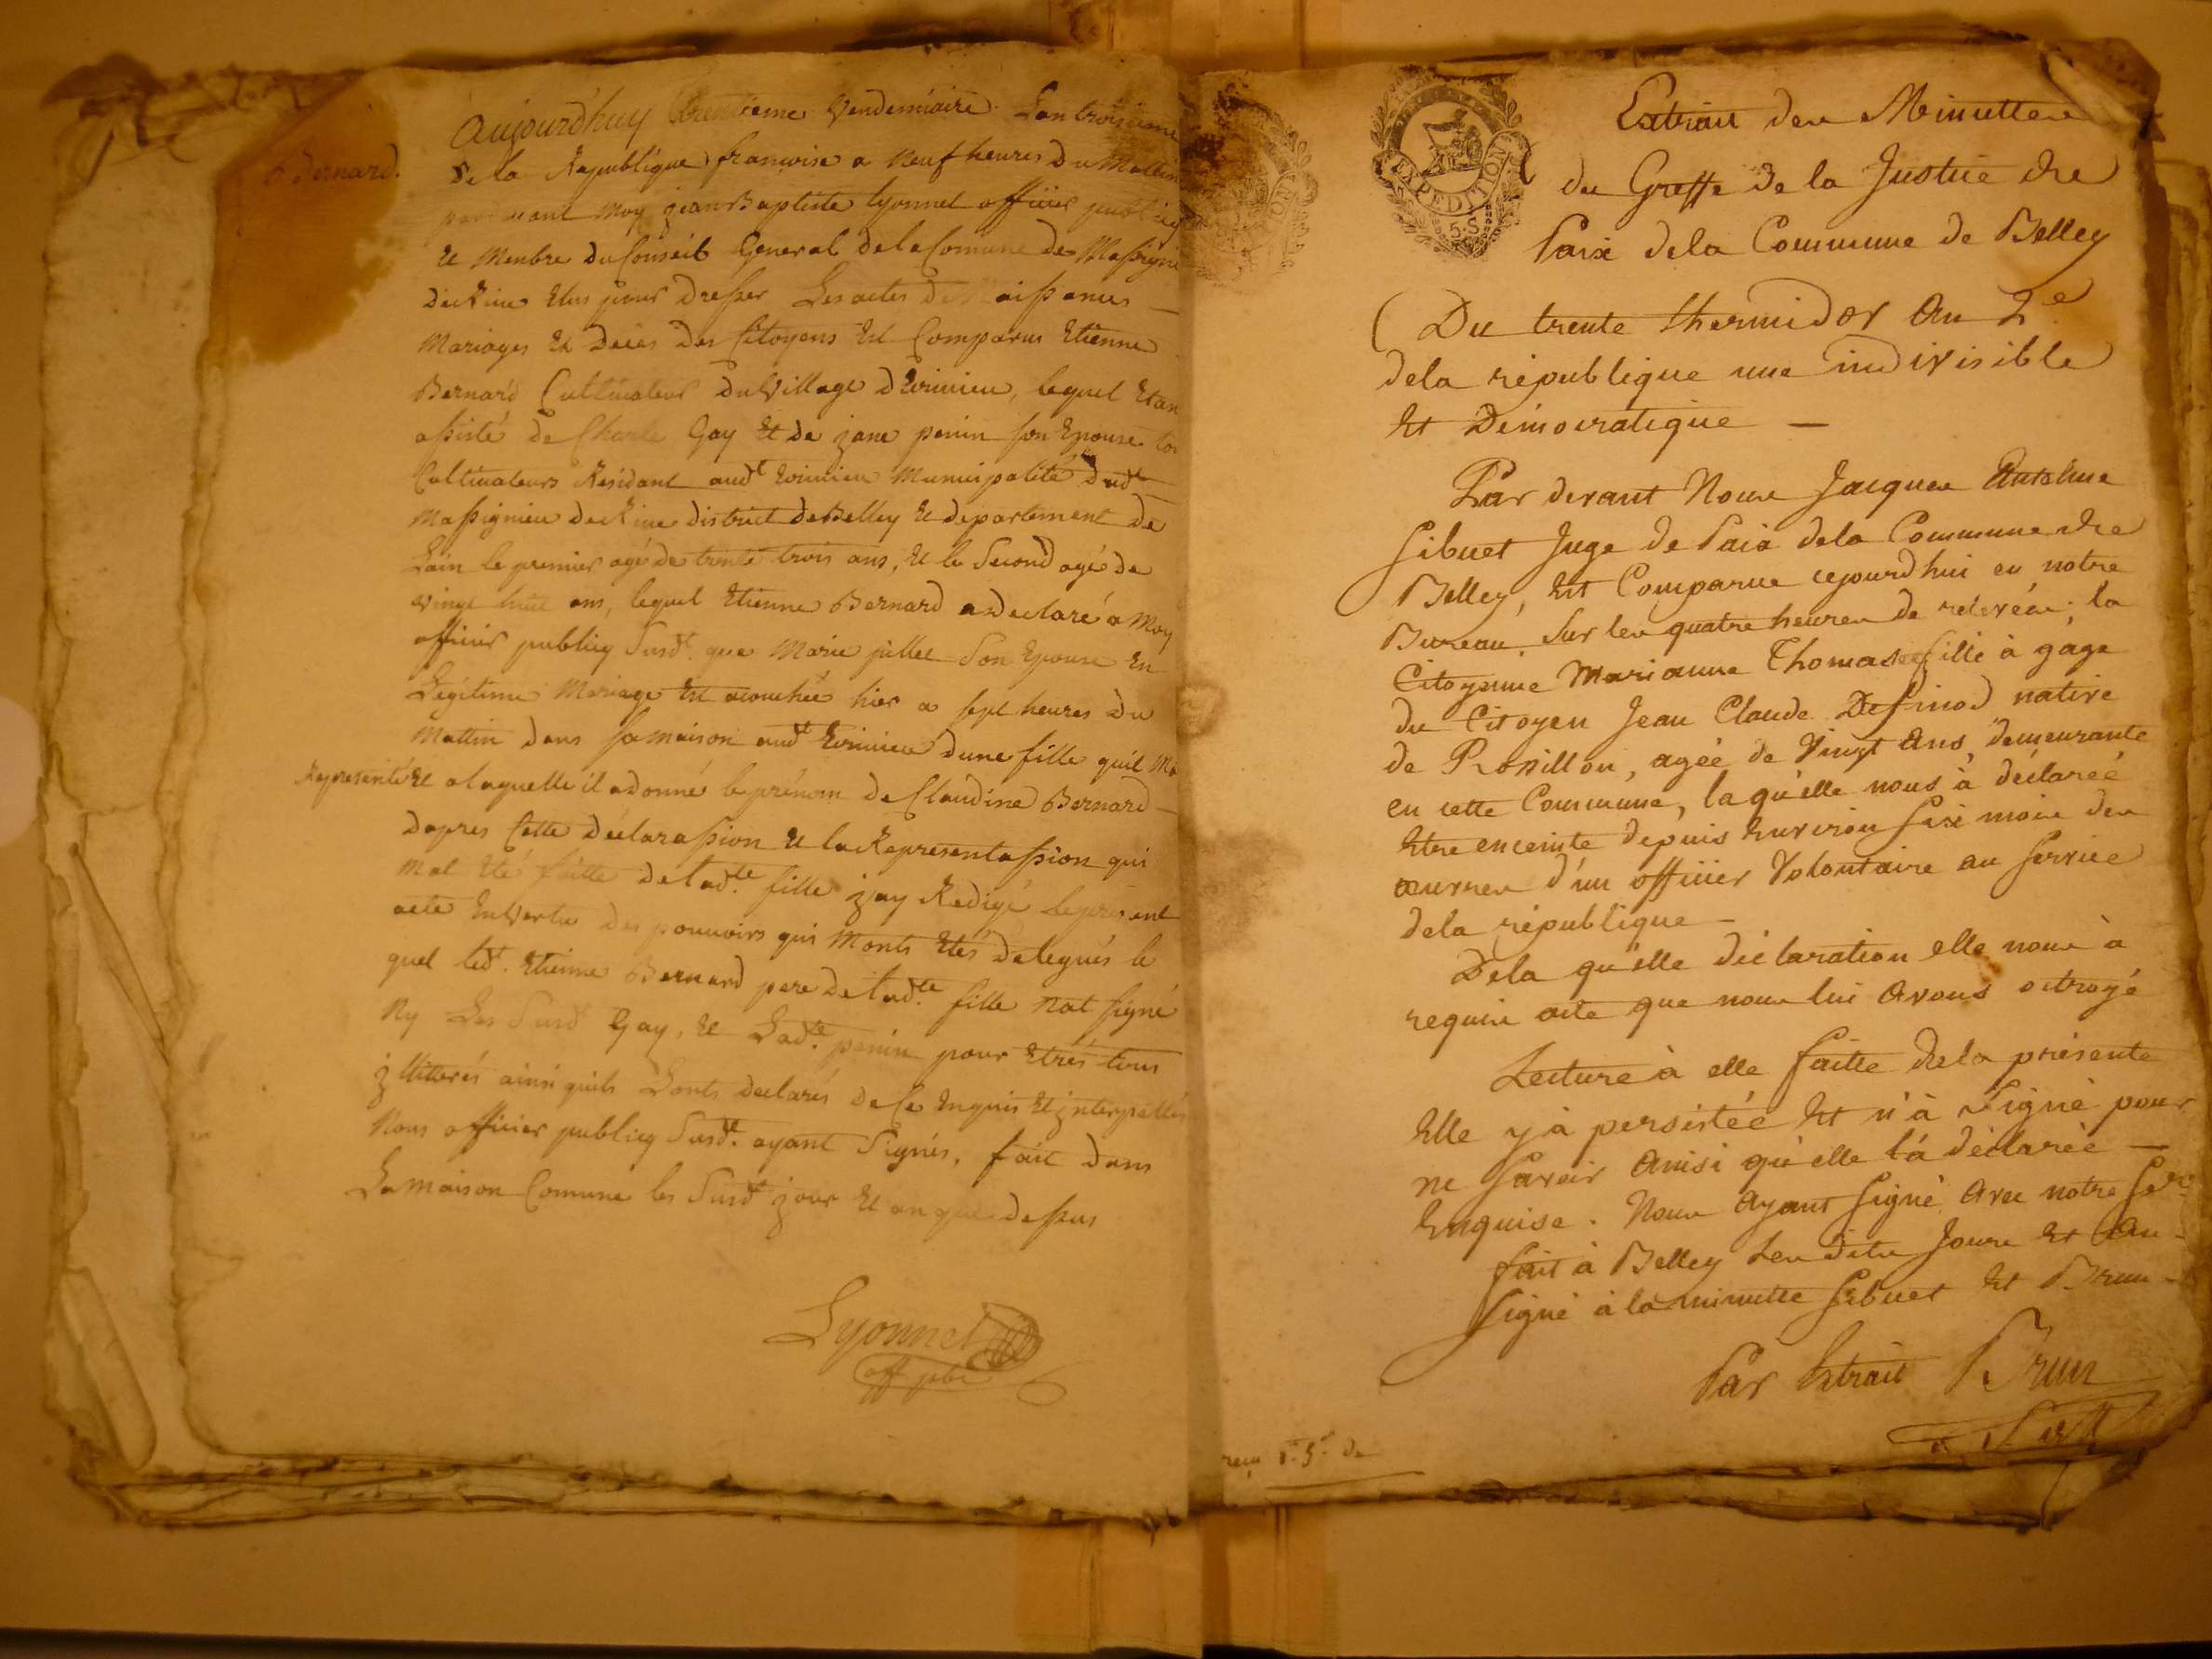 Bernard.
Aujourd'huy trentieme Vendemiaire Lan troisieme
de la Republique francoise a neuf heures du Mattin
par devant moy jean Baptiste lyonnet officier publicq
et Menbre du Conseil General de la Comune de Massigni
derRive elus pour dresser Les actes de Naissances
Mariages et deces des Citoyens est Comparus Etienne
Bernard Cultivateur du Village d'Evinieu, lequel Etan
assisté de Charle Gay et de jane penin son Epouse
Cultivateurs Résidant audt Evinieu Municipalité dudt
Massignieu de Rive district de Belley et departement de
Lain le premier agé de trente trois ans, et le Second agé de
vingt huit ans, lequel Etienne Bernard a declaré a Moy
officier publicq Susdt. que Marie jullet Son Epouse En
Legitime Mariage est acouchée hier a sept heures du
Mattin dans sa maison audt Evinieu dune fille quil Ma
Representé et a laquelle il a donné le prénom de Claudine Bernard
dapres Cette déclarassion et la Representassion qui
mat eté faitte de ladte. fille jay Redigé le present
acte en Vertu des pouvoirs qui Monts Etés delegués le
quel ledt. Etienne Bernard pere de ladte. fille nat signé
Ny Les Susdt Gay, et Ladte. penin pour Etrés tous
jllitterés ainsi quils Lonts declarés de Ce Enquis et jnterpellés
Nous officier publicq Susdt. ayant Signés, fait dans
La maison Comune les Susdt jour et an que dessus
Lyonnet
off. pbc
EXPEDITION
5.S.
Extrait des Minuttes
du Greffe de la Justice de
Paix de la Commune de Belley
Du trente thermidor An 2e
dela république une indivisible
Et Démocratique —
Par devant Nous Jacques Anthelme
Sibuet Juge de Paix dela Commune de
Belley, Est Comparue cejourdhui en notre
Bureau sur les quatre heures de relevée, la
Citoyenne Marianne Thomas fille à gage
du Citoyen Jean Claude Defsinod native
de Rossillon, agée de Vingt Ans, demeurante
en cette Commune, laqu'elle nous à déclareé
Etre enceinte depuis Environ six mois des
œuvres d'un officier Volontaire au service
dela république —
Dela qu'elle déclaration elle nous à
requis acte que nous lui avons octroyé
Lecture à elle faitte dela présente
Elle y à persistée Et n'à Signé pour
ne savoir Ainsi qu'elle l'à déclarée —
Enquise. Nous Ayant signé Avec notre Ser
fait à Belley Les dits Jours Et An
signé à la minutte Sibuet Et Brun
Par Extrait Brun